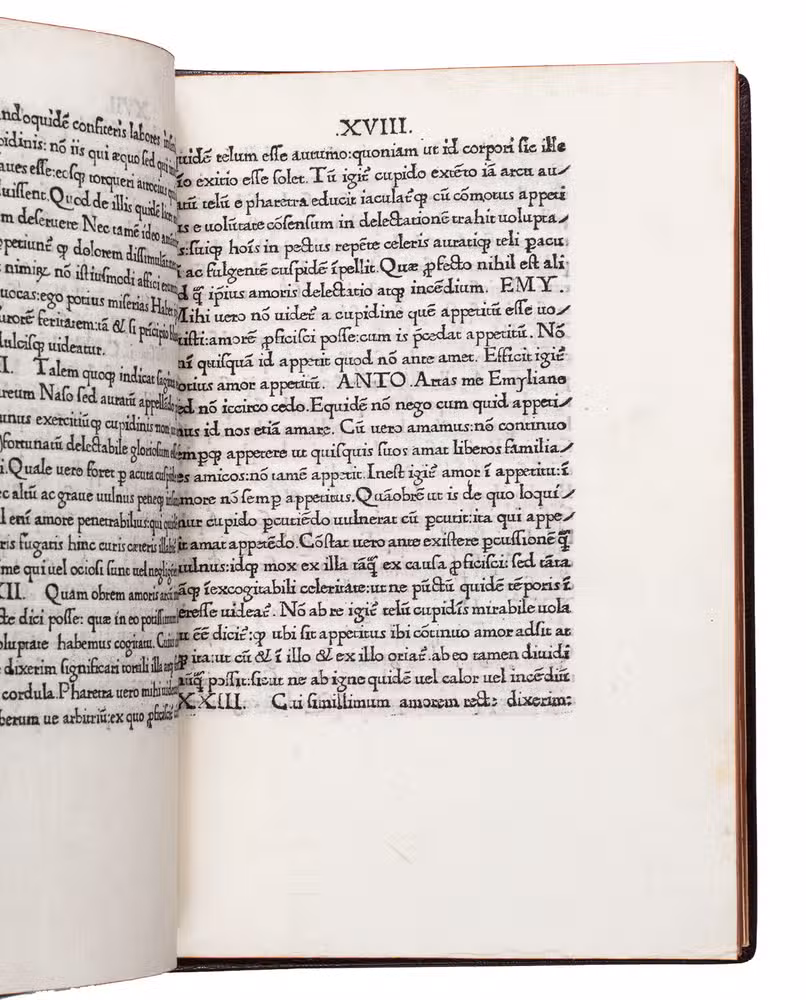 andoquidē confiteris labores
pidinis: nō iis qui æquo sed qui
aues esse:eosq; torqueri atrocius
uissent. Quod de illis quidē
m deseruere Nec tamē ideo
ppetiunt̄ ꝙ dolorem dissimulant
nimiꝝ nō istiusmodi affici
uocas:ego potius miserias
urorē feritatem:tā & si prīcipio
dulcisq; uideatur.
I. Talem quoq; indicat sagitta
reum Naso sed auratū appellādo
unus exercitiūq; cupidinis non
fortunatū delectabile gloriosum
i.Quale uero foret ꝑ acuta cuspide
ec altū ac graue uulnus peneq;
l enī amore penetrabilius:qui
ris fugatis hinc curis cæteris
me qui uel ociosi sunt uel
XII. Quam obrem amoris
te dici posse: quæ in eo potissimum
oluptate habemus cogitatū.
dixerim significari totali illa
cordula.Pharetra uero mihi
berum ue arbitriū:ex quo ꝓficisci
.XVIII.
uidē telum esse autumo:quoniam ut id corpori sic ille
īo exitio esse solet. Tū igit̄ cupido extēto iā arcu au⸗
atū telū e pharetra educit iaculat̄q; cū cōmotus appeti
s e uolūtate cōsensum in delectationē trahit uolupta⸗
s:sitiq; hoīs in pectus repēte celeris auratiq; teli ꝑacu
ī ac fulgentē cuspidē īpellit.Quæ ꝓfecto nihil est ali
d q̄ ipīus amoris delectatio atq; incēdium. EMY.
Mihi uero nō uidet̄ a cupidine quē appetitū esse uo⸗
uisti:amorē ꝓficisci posse:cum is p̄cedat appetitū. Nō
nī quisquā id appetit quod nō ante amet. Efficit igit̄
otius amor appetitū. ANTO. Artas me Emyliane
ed nō iccirco cedo.Equidē nō nego cum quid appeti⸗
us id nos etiā amare. Cū uero amamus:nō continuo
emꝑq; appetere ut quisquis suos amat liberos familia⸗
es amicos:nō tamē appetit.Inest igit̄ amor ī appetitu:ī
more nō semꝑ appetitus.Quāobrē ut is de quo loqui⸗
ur cupido ꝑcutiēdo uulnerat cū ꝑcutit:ita qui appe⸗
it amat appetēdo.Cōstat uero ante existere ꝑcussionē q̄
uulnus:idq; mox ex illa tāq̄ ex causa ꝓficisci: sed tāta
āq; īexcogitabili celeritate:ut ne pūctū quidē tēporis ī
eresse uideat̄. Nō ab re igit̄ telū cupidīs mirabile uola
u ēē dicit̄:ꝙ ubi sit appetitus ibi cōtinuo amor adsit at
ꝙ ita:ut cū & ī illo & ex illo oriat̄.ab eo tamen diuidi
ūq̄ possit:sicut ne ab igne quidē uel calor uel incēdiū
XXIII. Cui simillimum amorem recte dixerim: